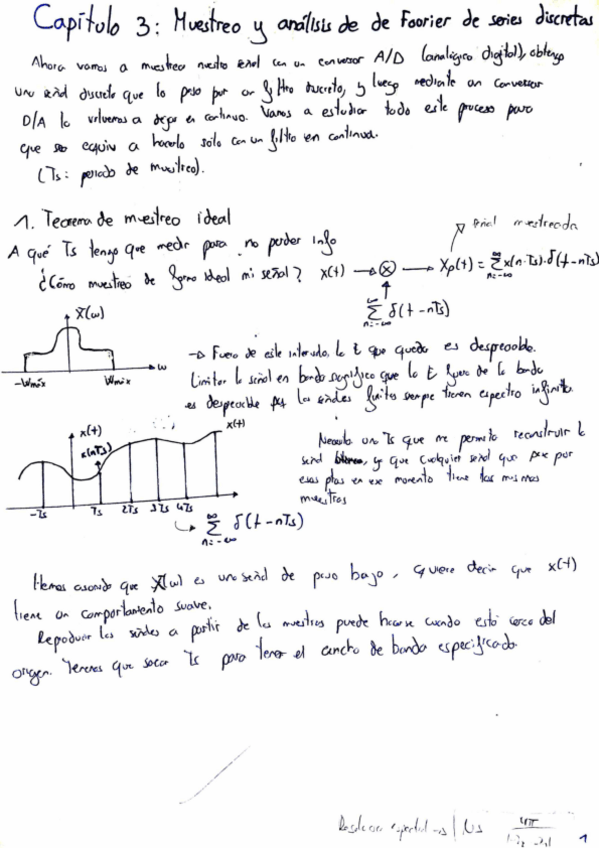 Capítulo 3: Muestreo y análisis de de Foorier de series discretas
Ahora vamos a muestrear nuestra señal con un conversor A/D (analógico digital), obtengo
una señal discreta que la paso por un filtro discreto, y luego mediante un conversor
D/A la volvemos a dejar en continuo. Vamos a estudiar todo este proceso para
que sea equiv a hacerlo solo con un filtro en continua.
(Ts: periodo de muestreo).
1. Teorema de muestreo ideal
señal muestreada
A qué Ts tengo que medir para no perder info
¿Cómo muestreo de forma ideal mi señal? x(t) → ⊗ → Xp(t) = ∑ x(n·Ts)·δ(t-nTs)
n=-∞
∞
∑ δ(t-nTs)
n=-∞
X(ω)
-Wmáx Wmáx ω
→ Fuera de este intervalo, la E que queda es despreciable.
Limitar la señal en banda significa que la E fuera de la banda
es despreciable pq las señales finitas siempre tienen espectro infinito.
x(t) x(nTs) x(t)
-Ts Ts 2Ts 3Ts 4Ts
∞
∑ δ(t-nTs)
n=-∞
Necesito un Ts que me permita reconstruir la
señal y que cualquier señal que pase por
esas ptos en ese momento tiene las mismas
muestras
Hemos asumido que X(ω) es una señal de paso bajo, quiere decir que x(t)
tiene un comportamiento suave.
Reproducir las señales a partir de las muestras puede hacerse cuando está cerca del
origen. Tenemos que sacar Ts para tener el ancho de banda especificado
4π
1